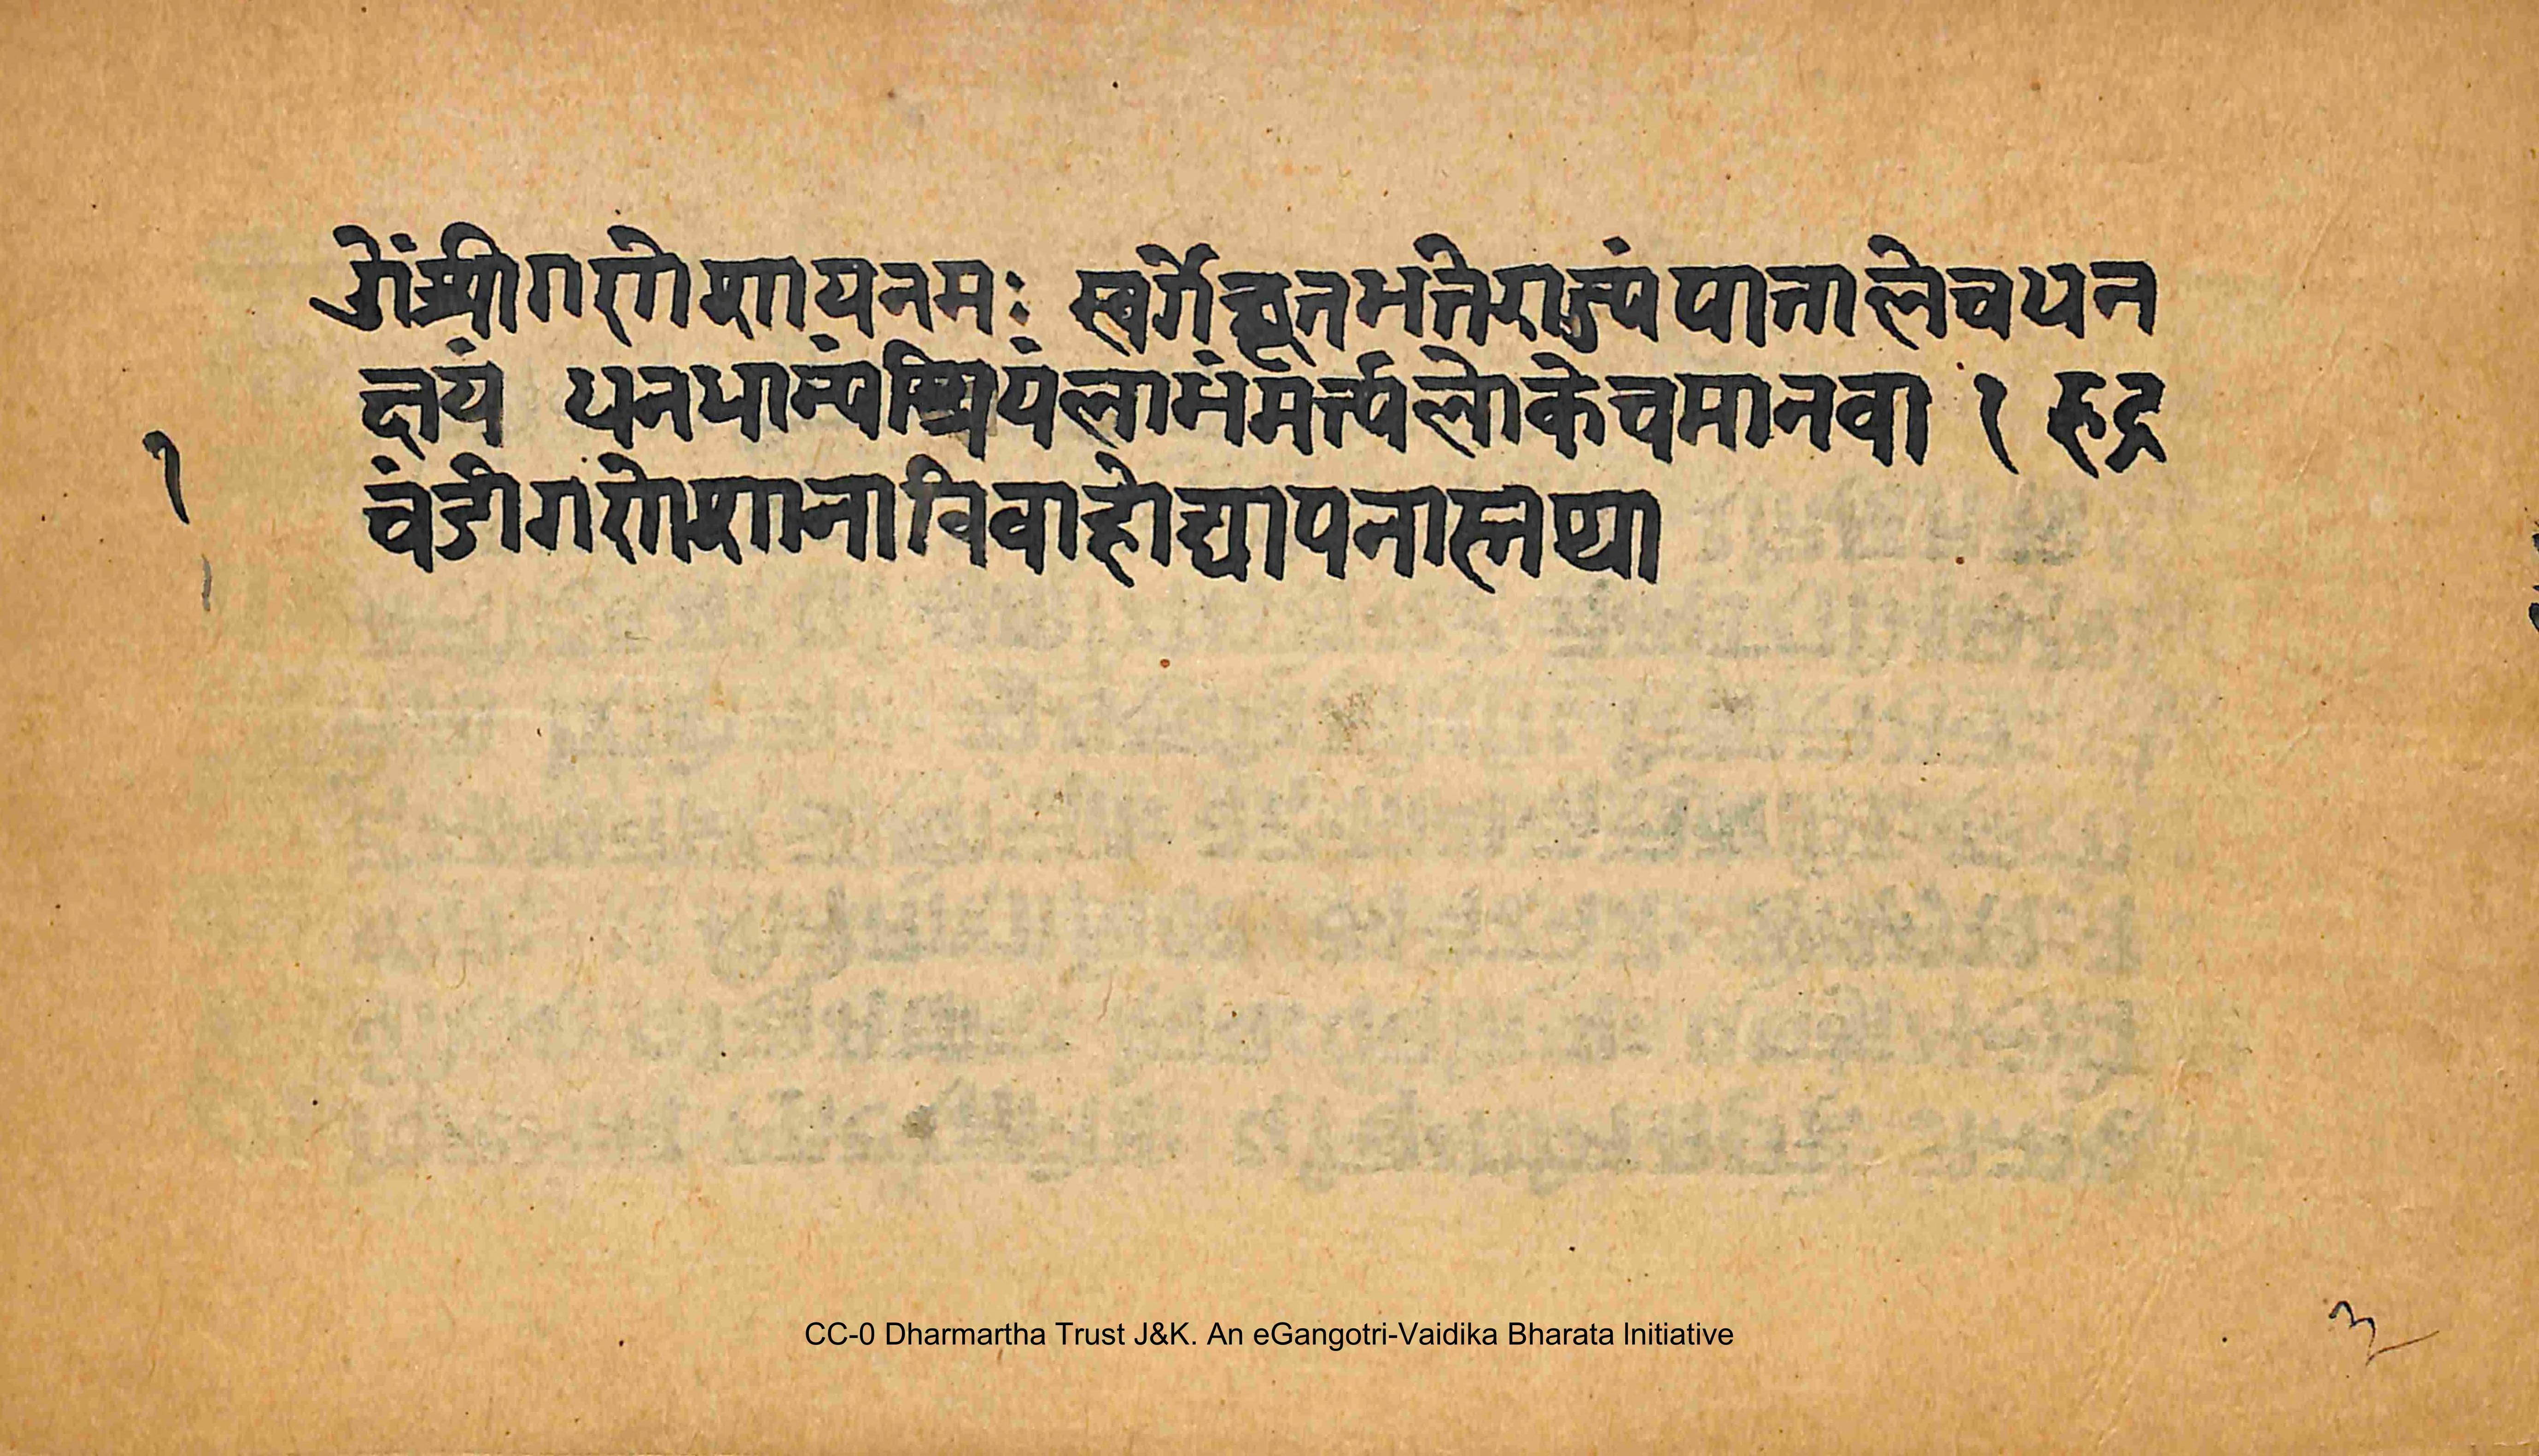 ओंश्रीगणेशायनमः स्वर्गेछूनभतेराज्यंपातालेचधन
क्षयं धनधान्यंश्रियंलाभंमर्त्यलोकेचमानवा १ रुद्र
चंडीगणेशानाविवाहोद्यापनास्तथा
१
३
CC-0 Dharmartha Trust J&K. An eGangotri-Vaidika Bharata Initiative